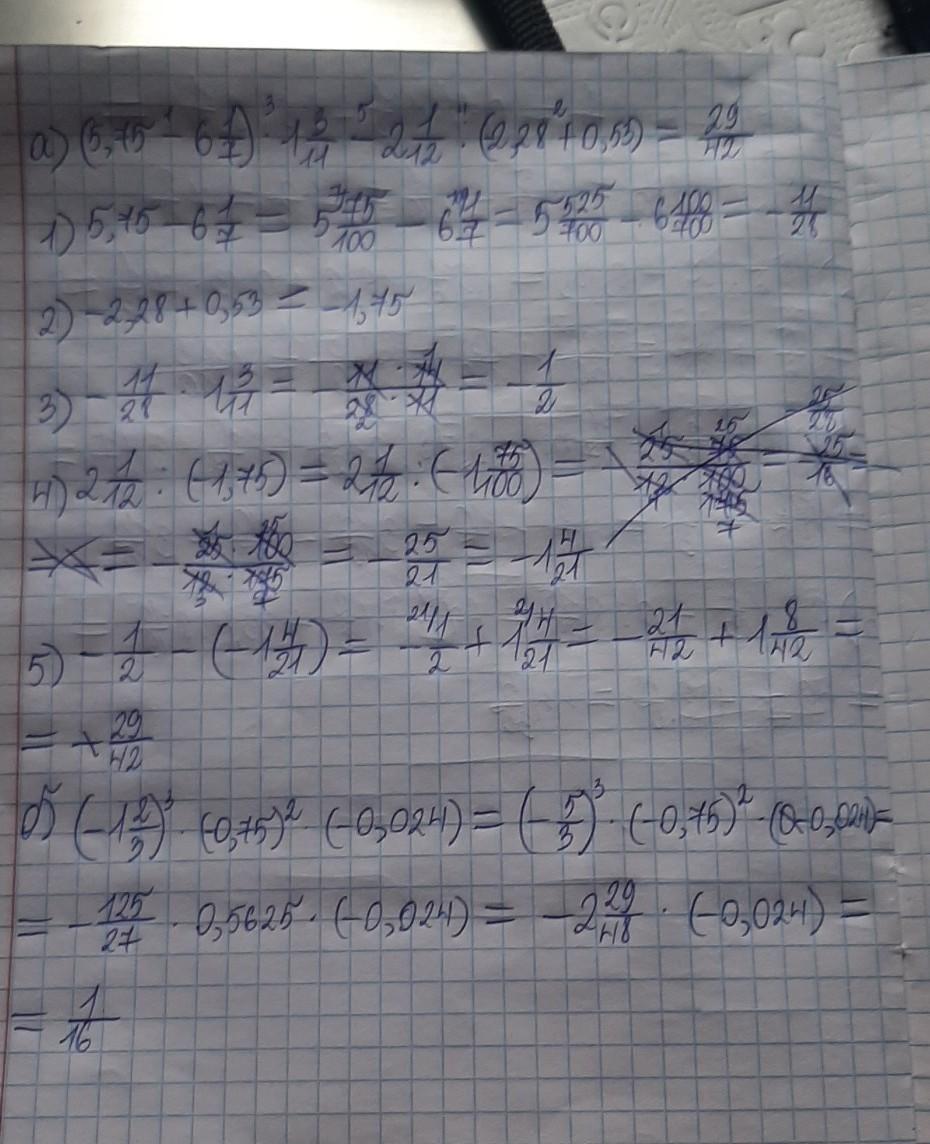 а) (5,75 - 6 1/7) · 1 3/11 - 2 1/12 : (-2,28 + 0,53) = 29/42
1) 5,75 - 6 1/7 = 5 75/100 - 6 1/7 = 5 525/700 - 6 100/700 = - 11/28
2) -2,28 + 0,53 = -1,75
3) - 11/28 · 1 3/11 = - 11 · 14/28 · 11 = - 1/2
4) 2 1/12 : (-1,75) = 2 1/12 : (-1 75/100) =
= - 25 · 100/12 · 175 = - 25/21 = -1 4/21
5) - 1/2 - (-1 4/21) = - 1/2 + 1 4/21 = - 21/42 + 1 8/42 =
= 29/42
б) (-1 2/3)³ · (-0,75)² · (-0,024) = (- 5/3)³ · (-0,75)² · (-0,024) =
= - 125/27 · 0,5625 · (-0,024) = -2 29/48 · (-0,024) =
= 1/16